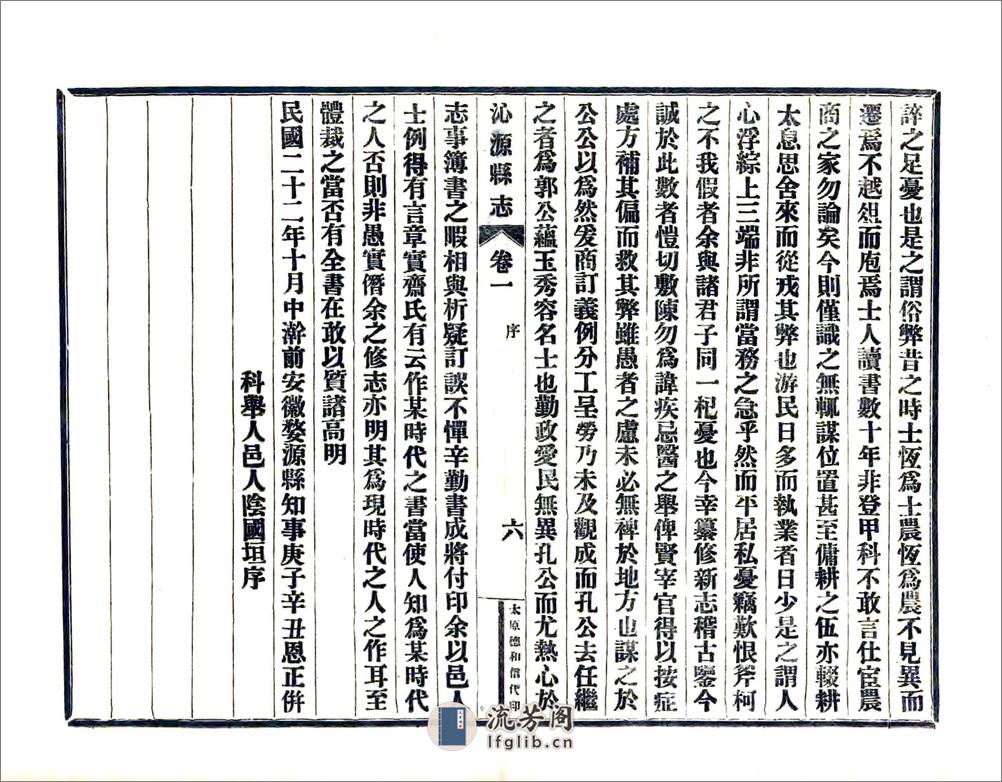 誶之足憂也是之謂俗弊昔之時士恆爲士農恆爲農不見異而
遷焉不越俎而庖焉士人讀書數十年非登甲科不敢言仕宦農
商之家勿論矣今則僅識之無輒謀位置甚至傭耕之伍亦輟耕
太息思舍來而從戎其弊也游民日多而執業者日少是之謂人
心浮綜上三端非所謂當務之急乎然而平居私憂竊歎恨斧柯
之不我假者余與諸君子同一杞憂也今幸纂修新志稽古鑒今
誠於此數者愷切敷陳勿爲諱疾忌醫之舉俾賢宰官得以按症
處方補其偏而救其弊雖愚者之慮未必無裨於地方也謀之於
公公以爲然爰商訂義例分工呈勞乃未及觀成而孔公去任繼
之者爲郭公蘊玉秀容名士也勤政愛民無異孔公而尤熱心於
沁源縣志 卷一 序 六 太原德和信代印
志事簿書之暇相與析疑訂誤不憚辛勤書成將付印余以邑人
士例得有言章實齋氏有云作某時代之書當使人知爲某時代
之人否則非愚實僭余之修志亦明其爲現時代之人之作耳至
體裁之當否有全書在敢以質諸高明
民國二十二年十月中澣前安徽婺源縣知事庚子辛丑恩正併
科舉人邑人陰國垣序
流芳阁
lfglib.cn